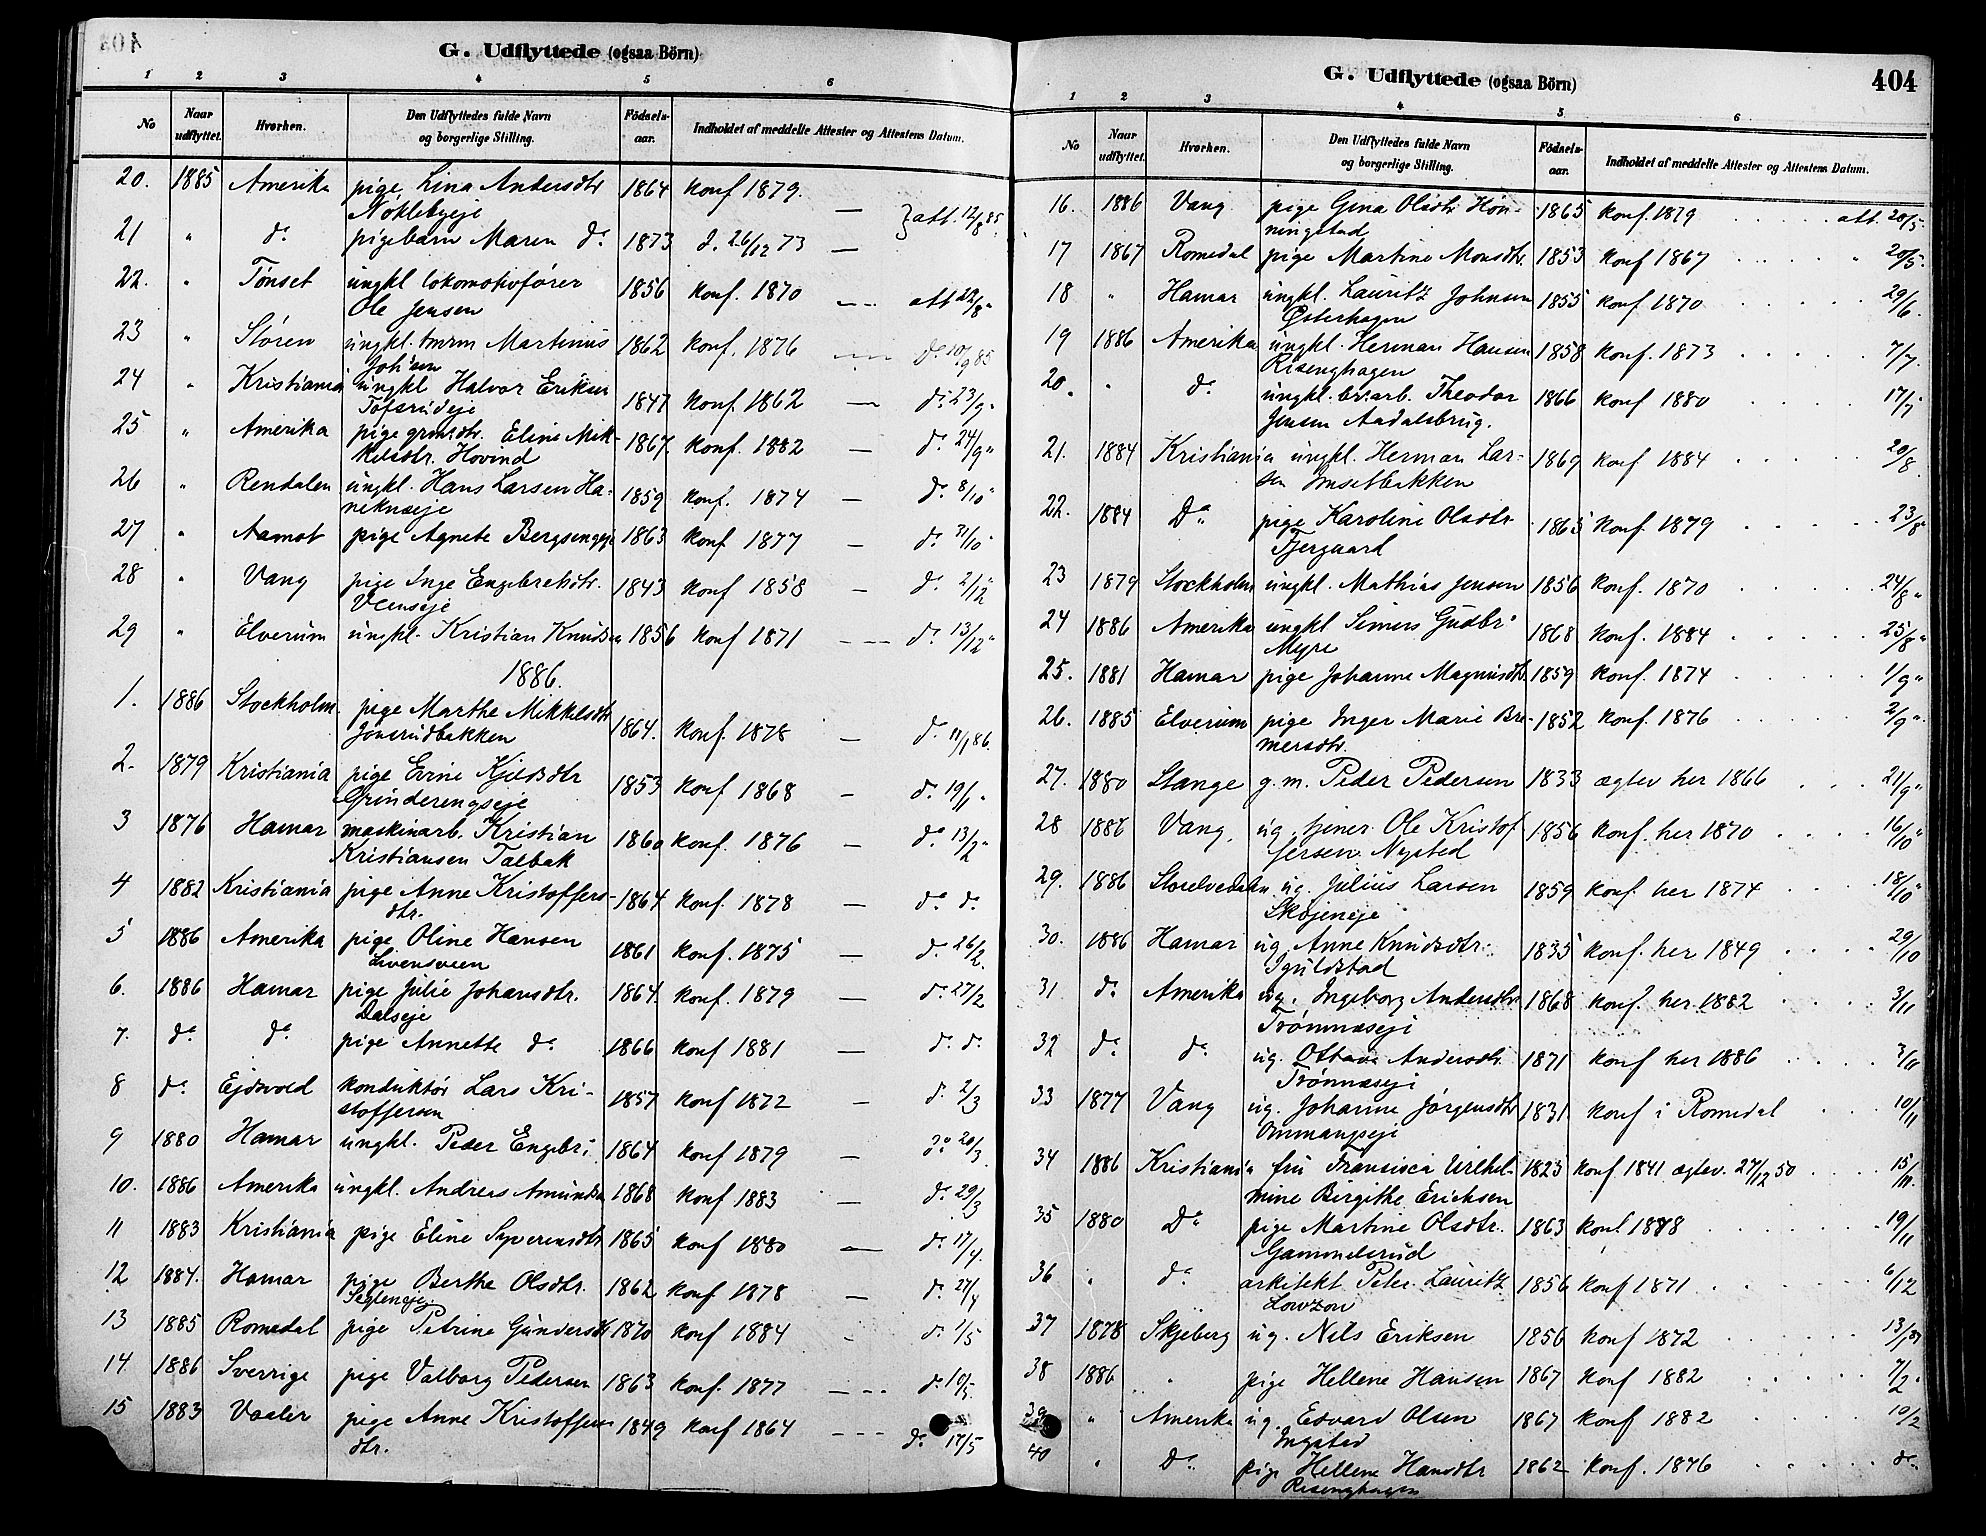 G. Udflyttede (ogsaa Börn)
1 2 3 4 5 6
No Naar udflyttet. Hvorhen. Den Udflyttedes fulde Navn og borgerlige Stilling. Födsels-aar. Indholdet af meddelte Attester og Attestens Datum.
20. 1885 Amerika pige Lina Andersdtr 1864 konf 1879. —
Nöklebyeje } att. 12/8 85.
21 " do pigebarn Maren do 1873 d. 26/12 73 —
22. " Tönset ungkl lokomotivförer 1856 konf. 1870 — att 22/8 "
Ole Jensen
23 " Stören ungkl. tmrm Martinius 1862 konf. 1876 — do 10/9 85
Johsen
24 " Kristiania ungkl Halvor Eriksen 1847 konf. 1862 — do 23/9 "
Tofsrudeje
25 " Amerika pige grmsdtr. Eline Mik- 1867. konf. 1882 — do 24/9 "
kelsdtr. Hovind
26 " Rendalen ungkl. Hans Larsen Ha- 1859 konf. 1874 — do 8/10 "
neknæeje
27 " Aamot pige Agnete Bergsengeje 1863 konf 1877 — do 31/10 "
28 " Vang pige Inge Engebretsdtr. 1843 konf 1858 — do 2/12 "
29 " Elverum ungkl. Kristian Knudsen 1856 konf 1871 — do 13/12 "
1886.
1. 1886 Stockholm pige Marthe Mikkelsdtr 1864. konf. 1878 — do 11/1 86.
Jonsrudbakken
2. 1879 Kristiania pige Evine Kjeldsdtr 1853 konf 1868 — do 19/1 "
Grinderengseje
3 1876 Hamar maskinarb. Kristian 1860 konf. 1876 — do 13/2 "
Kristiansen Talbak
4 1882 Kristiania pige Anne Kristoffers- 1864 konf. 1878 — do do
dtr.
5 1886 Amerika pige Oline Hansen 1861 konf. 1875 — do 26/2.
6. 1886 Hamar pige Julie Johansdtr. 1864. konf. 1879 — do 27/2
Dalseje
7. do do pige Annette do 1866 konf 1881 — do do
8 do Ejdsvold konduktör Lars Kri- 1857 konf 1872 — do 2/3
stoffersen
9 1880 Hamar ungkl. Peder Engebr: 1864 konf 1879 — do 20/3
10. 1886 Amerika ungkl. Andreas Amundsen 1868 konf 1883 — do 29/3
11 1883 Kristiania pige Eline Syverensdtr 1865 konf 1880 — do 17/4.
12 1884. Hamar pige Berthe Olsdtr. 1862 konf 1878 — do 27/4
13 1885 Romedal pige Petrine Gundersdtr 1870 konf 1884 — do 1/5
14 1886 Sverrige pige Valborg Pedersen 1863 konf. 1877 — do 10/5.
15 1883 Vaaler pige Anne Kristoffers 1849 konf 1864 — do 17/5
dtr.
G. Udflyttede (ogsaa Börn) 404
1 2 3 4 5 6
No Naar udflyttet. Hvorhen. Den Udflyttedes fulde Navn og borgerlige Stilling. Födsels-aar. Indholdet af meddelte Attester og Attestens Datum.
16. 1886 Vang pige Gina Olsdtr Høn- 1865 konf. 1879 att. 20/5.
ningstad
17 1867 Romedal pige Martine Monsdtr. 1853 konf 1867 " 20/5.
18 " Hamar ungkl. Lauritz Johnsen 1855 konf 1870 29/6.
Østerhagen
19 1886 Amerika ungkl. Herman Hansen 1858 konf. 1873 7/7.
Risenghagen
20. " do ungkl. br:arb. Theodor 1866 konf 1880 17/7
Jensen Aadalsbrug.
21. 1884 Kristiania ungkl. Herman Lar- 1869 konf 1884 20/8.
sen Imsetbakken
22. 1884 Do pige Karoline Olsdtr 1865 konf 1879 23/8 "
Fjergaard
23 1879 Stockholm ungkl. Mathias Jensen 1856 konf. 1870 24/8 "
24 1886 Amerika ungkl Simers Gudbr: 1868 konf. 1884 25/8 "
Myre
25. 1881 Hamar pige Johanne Magnusdtr 1859 konf. 1874 1/9 "
26. 1885 Elverum pige Inger Marie Bre- 1852 konf. 1876 2/9 "
mersdtr.
27. 1880 Stange g. m. Peder Pedersen 1833 ægtev her 1866 21/9 "
28 1886 Vang. ug. tjener Ole Kristof 1856 konf. her 1870 16/10 "
fersen Nysted
29. 1886 Storelvedalen ug. Julius Larsen 1859 konf. her 1874 18/10 "
Skøjeneje
30. 1886 Hamar ug. Anne Knudsdtr. 1835 konf. her 1849 29/10
Iguldstad
31 do Amerika ug. Ingeborg Andersdtr 1868 konf. her. 1882 3/11
Trönnæseje
32 do do ug. Ottave Andersdtr. 1871 konf her 1886 3/11
Trönnæseje
33 1877 Vang ug. Johanne Jörgensdtr 1831 konf i Romedal 10/11
Ommangseje
34 1886 Kristiania fru Fransisca Vilhel- 1825 konf 1841 ægtev. 27/12 50 15/11.
mine Birgithe Erichsen
35 1880 Do pige Martine Olsdtr. 1863 konf. 1878 19/11
Gammelsrud
36 " do arkitekt Peter Lauritz 1856 konf 1871 6/12
Lowzon
37 1878 Skjeberg ug. Nils Eriksen 1856 konf 1872 13/1 87
38 1886 " pige Hellene Hansen 1867 konf 1882 7/2.
39 " Amerika ug. Edvard Olsen 1867 konf 1882 10/2
Ingstad
40 " Do pige Hellene Hansdtr 1862 konf. 1876 do
Risenghagen